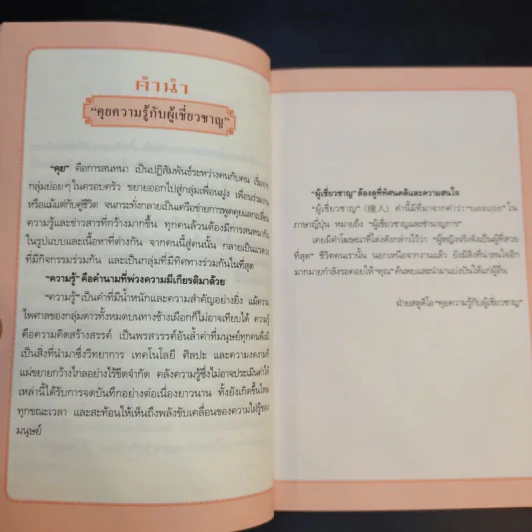 คำนำ
“คุยความรู้กับผู้เชี่ยวชาญ”
“คุย” คือการสนทนา เป็นปฏิสัมพันธ์ระหว่างคนกับคน เริ่มจาก
กลุ่มย่อยๆ ในครอบครัว ขยายออกไปสู่กลุ่มเพื่อนฝูง เพื่อนร่วมงาน
หรือแม้แต่กับคู่ชีวิต จนกระทั่งกลายเป็นเครือข่ายการพูดคุยแลกเปลี่ยน
ความรู้และข่าวสารที่กว้างมากขึ้น ทุกคนล้วนต้องมีการสนทนากัน
ในรูปแบบและเนื้อหาที่ต่างกัน จากคนนี้สู่คนนั้น กลายเป็นแวดวง
ที่มีกิจกรรมร่วมกัน และเป็นกลุ่มที่มีทิศทางร่วมกันในที่สุด
“ความรู้” คือคำนามที่พ่วงความมีเกียรติมาด้วย
“ความรู้” เป็นคำที่มีน้ำหนักและความสำคัญอย่างยิ่ง แม้ความ
ไพศาลของกลุ่มดาวทั้งหมดบนทางช้างเผือกก็ไม่อาจเทียบได้ ความรู้
คือความคิดสร้างสรรค์ เป็นพรสวรรค์อันล้ำค่าที่มนุษย์ทุกคนพึงมี
เป็นสิ่งที่นำมาซึ่งวิทยาการ เทคโนโลยี ศิลปะ และความงดงามที่
แผ่ขยายกว้างไกลอย่างไร้ขีดจำกัด คลังความรู้ซึ่งไม่อาจประเมินค่าได้
เหล่านี้ได้รับการจดบันทึกอย่างต่อเนื่องยาวนาน ทั้งยังเกิดขึ้นใหม่
ทุกขณะเวลา และสะท้อนให้เห็นถึงพลังขับเคลื่อนของความใฝ่รู้ของ
มนุษย์
“ผู้เชี่ยวชาญ” ต้องดูที่ทัศนคติและความสนใจ
“ผู้เชี่ยวชาญ” (達人) คำนี้มีที่มาจากคำว่า ใน
ภาษาญี่ปุ่น หมายถึง “ผู้เชี่ยวชาญและชำนาญการ”
เคยมีคำโฆษณาที่โด่งดังกล่าวไว้ว่า “ผู้หญิงจริงจังเป็นผู้ที่สวย
ที่สุด” ชีวิตคนเรานั้น นอกเหนือจากงานแล้ว ยังมีสิ่งที่น่าสนใจอีก
มากมายกำลังรอคอยให้ “คุณ” ค้นพบและนำมาแบ่งปันให้แก่ผู้อื่น
ฝ่ายสตูดิโอ “คุยความรู้กับผู้เชี่ยวชาญ”